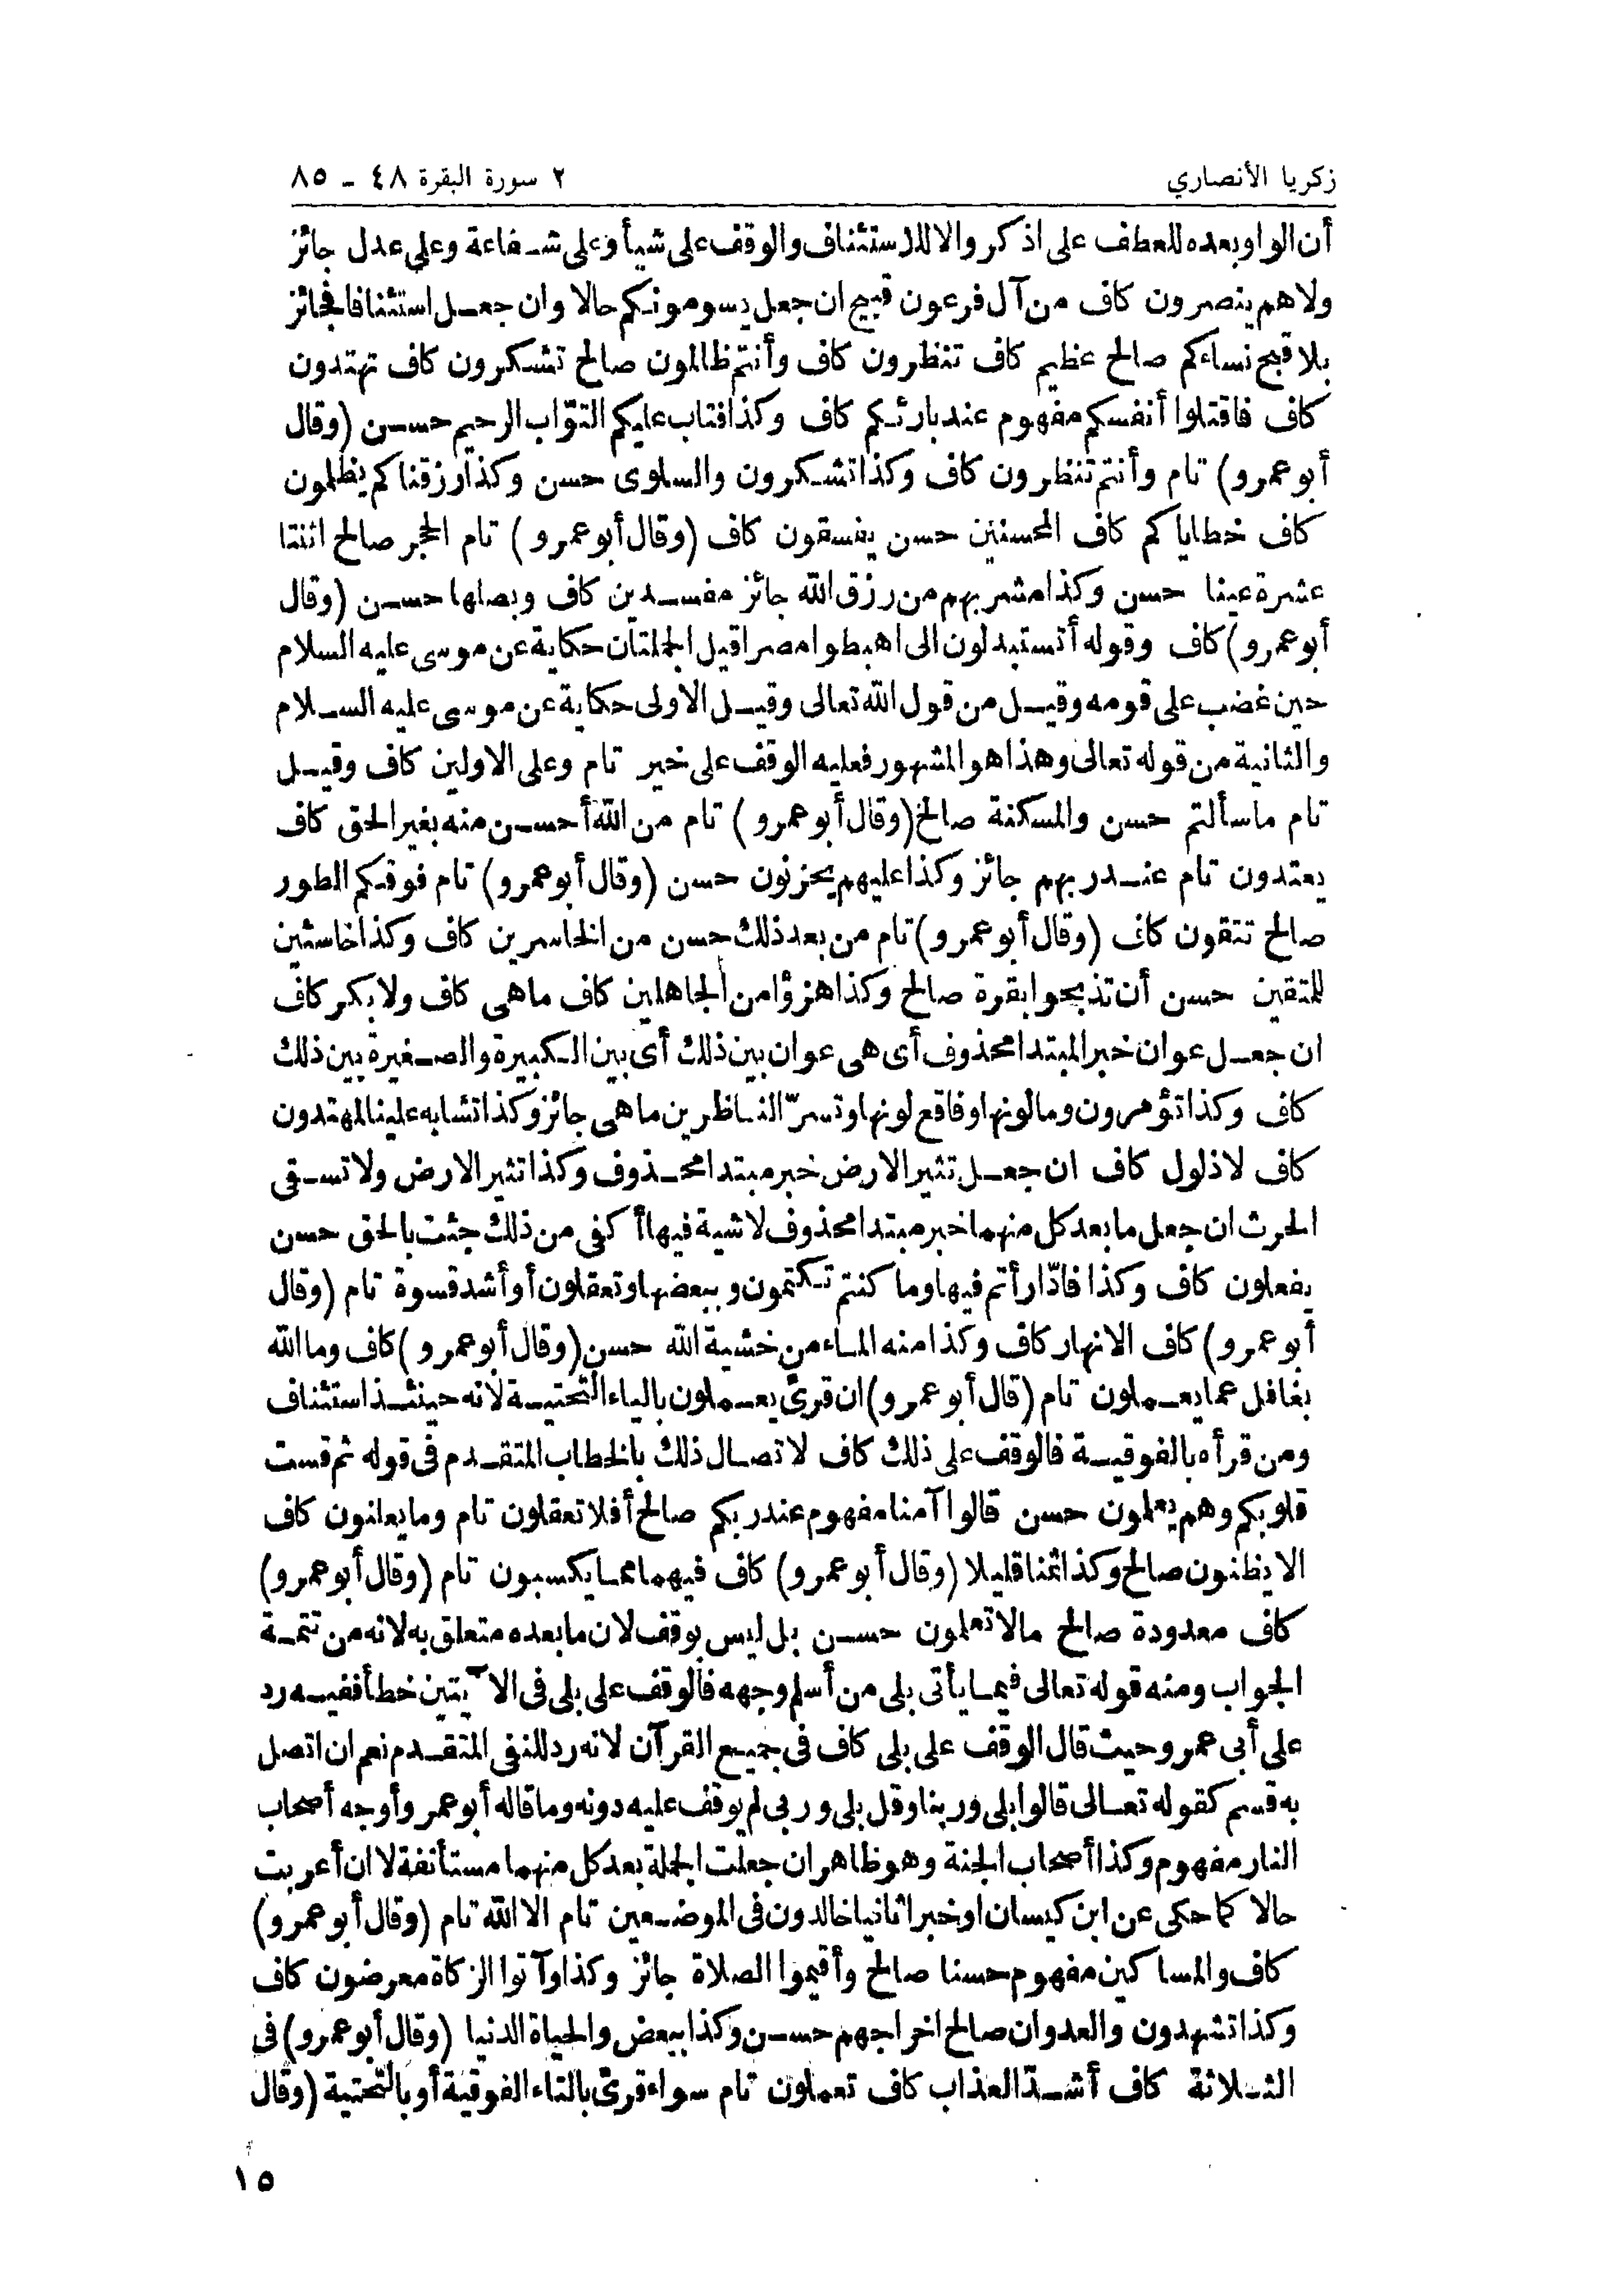 زكريا الأنصاري
٢ سورة البقرة ٤٨ - ٨٥
أن الواو بعده للعطف على اذكروا لا للاستئناف والوقف على شيأ وعلى شفاعة وعلى عدل جائز
ولاهم ينصرون كاف من آل فرعون قبيح ان جعل يسومونكم حالا وان جعل استئنافا فجائز
بلا قبح نساءكم صالح عظيم كاف تنظرون كاف وأنتم ظالمون صالح تشكرون كاف تهتدون
كاف فاقتلوا أنفسكم مفهوم عند بارئكم كاف وكذا فتاب عليكم التوّاب الرحيم حسن (وقال
أبو عمرو) تام وأنتم تنظرون كاف وكذا تشكرون والسلوى حسن وكذا رزقناكم يظلمون
كاف خطاياكم كاف المحسنين حسن يفسقون كاف (وقال أبو عمرو) تام الحجر صالح اثنتا
عشرة عينا حسن وكذا مشربهم من رزق الله جائز مفسدين كاف وبصلها حسن (وقال
أبو عمرو) كاف وقوله أتستبدلون الى اهبطوا مصرا قيل الجملتان حكاية عن موسى عليه السلام
حين غضب على قومه وقيل من قول الله تعالى وقيل الاولى حكاية عن موسى عليه السلام
والثانية من قوله تعالى وهذا هو المشهور فعليه الوقف على خير تام وعلى الاولين كاف وقيل
تام ما سألتم حسن والمسكنة صالح (وقال أبو عمرو) تام من الله أحسن منه بغير الحق كاف
يعتدون تام عند ربهم جائز وكذا عليهم يحزنون حسن (وقال أبو عمرو) تام فوقكم الطور
صالح تتقون كاف (وقال أبو عمرو) تام من بعد ذلك حسن من الخاسرين كاف وكذا خاسئين
للمتقين حسن أن تذبحوا بقرة صالح وكذا هزؤا من الجاهلين كاف ما هى كاف ولا بكر كاف
ان جعل عوان خبر المبتدا محذوف أى هى عوان بين ذلك أى بين الكبيرة والصغيرة بين ذلك
كاف وكذا تؤمرون وما لونها وفاقع لونها وتسرّ الناظرين ما هى جائز وكذا تشابه علينا لمهتدون
كاف لا ذلول كاف ان جعل تثير الارض خبر مبتدا محذوف وكذا تثير الارض ولا تسقى
الحرث ان جعل ما بعد كل منهما خبر مبتدا محذوف لا شية فيها أكفى من ذلك جئت بالحق حسن
يفعلون كاف وكذا فادّارأتم فيها وما كنتم تكتمون وببعضها وتعقلون أو أشد قسوة تام (وقال
أبو عمرو) كاف الانهار كاف وكذا منه الماء من خشية الله حسن (وقال أبو عمرو) كاف وما الله
بغافل عما يعملون تام (قال أبو عمرو) ان قرئ يعملون بالياء التحتية لانه حينئذ استئناف
ومن قرأه بالفوقية فالوقف على ذلك كاف لاتصال ذلك بالخطاب المتقدم فى قوله ثم قست
قلوبكم وهم يعلمون حسن قالوا آمنا مفهوم عند ربكم صالح أفلا تعقلون تام وما يعلنون كاف
الا يظنون صالح وكذا ثمنا قليلا (وقال أبو عمرو) كاف فيهما مما يكسبون تام (وقال أبو عمرو)
كاف معدودة صالح ما لا تعلمون حسن بل ليس بوقف لان ما بعده متعلق به لانه من تتمة
الجواب ومنه قوله تعالى فيما يأتى بلى من أسلم وجهه فالوقف على بلى فى الآيتين خطأ ففيه رد
على أبى عمرو حيث قال الوقف على بلى كاف فى جميع القرآن لانه رد للنفى المتقدم نعم ان اتصل
به قسم كقوله تعالى قالوا بلى وربنا وقل بلى وربى لم يوقف عليه دونه وما قاله أبو عمرو أوجه أصحاب
النار مفهوم وكذا أصحاب الجنة وهو ظاهر ان جعلت الجملة بعد كل منهما مستأنفة لا ان أعربت
حالا كما حكى عن ابن كيسان او خبرا ثانيا خالدون فى الموضعين تام الا الله تام (وقال أبو عمرو)
كاف والمساكين مفهوم حسنا صالح وأقيموا الصلاة جائز وكذا وآتوا الزكاة معرضون كاف
وكذا تشهدون والعدوان صالح اخراجهم حسن وكذا ببعض والحياة الدنيا (وقال أبو عمرو) فى
الثلاثة كاف أشدّ العذاب كاف تعملون تام سواء قرئ بالتاء الفوقية أو بالتحتية (وقال
١٥